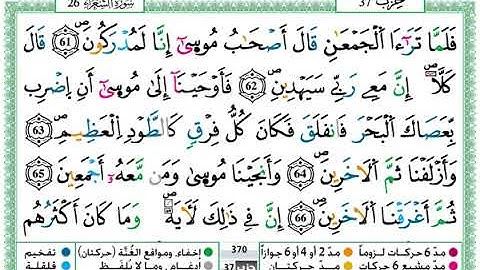 سُورَةُ الشُّعَرَاء 26 حِزْب 37
فَلَمَّا تَرَٰٓءَا ٱلْجَمْعَٰنِ قَالَ أَصْحَٰبُ مُوسَىٰٓ إِنَّا لَمُدْرَكُونَ 61 قَالَ
كَلَّآ إِنَّ مَعِے رَبِّے سَيَهْدِينِ 62 فَأَوْحَيْنَآ إِلَىٰ مُوسَىٰٓ أَنِ اِ۪ضْرِب
بِّعَصَاكَ ٱلْبَحْرَ فَانفَلَقَ فَكَانَ كُلُّ فِرْقٖ كَالطَّوْدِ ٱلْعَظِيمِ 63
وَأَزْلَفْنَا ثَمَّ ٱلَاخَرِينَ 64 وَأَنجَيْنَا مُوسَىٰ وَمَن مَّعَهُۥٓ أَجْمَعِينَ 65
ثُمَّ أَغْرَقْنَا ٱلَاخَرِينَ 66 إِنَّ فِے ذَٰلِكَ لَأٓيَةٗ وَمَا كَانَ أَكْثَرُهُم
مدّ 6 حركات لزوماً مدّ 2 أو 4 أو 6 جوازاً 370 إخفاء، ومواقع الغُنَّة (حركتان) تفخيم
مدّ مشبع 6 حركات مدّ حركتان 37 إدغام، وما لا يُلفَظ قلقلة